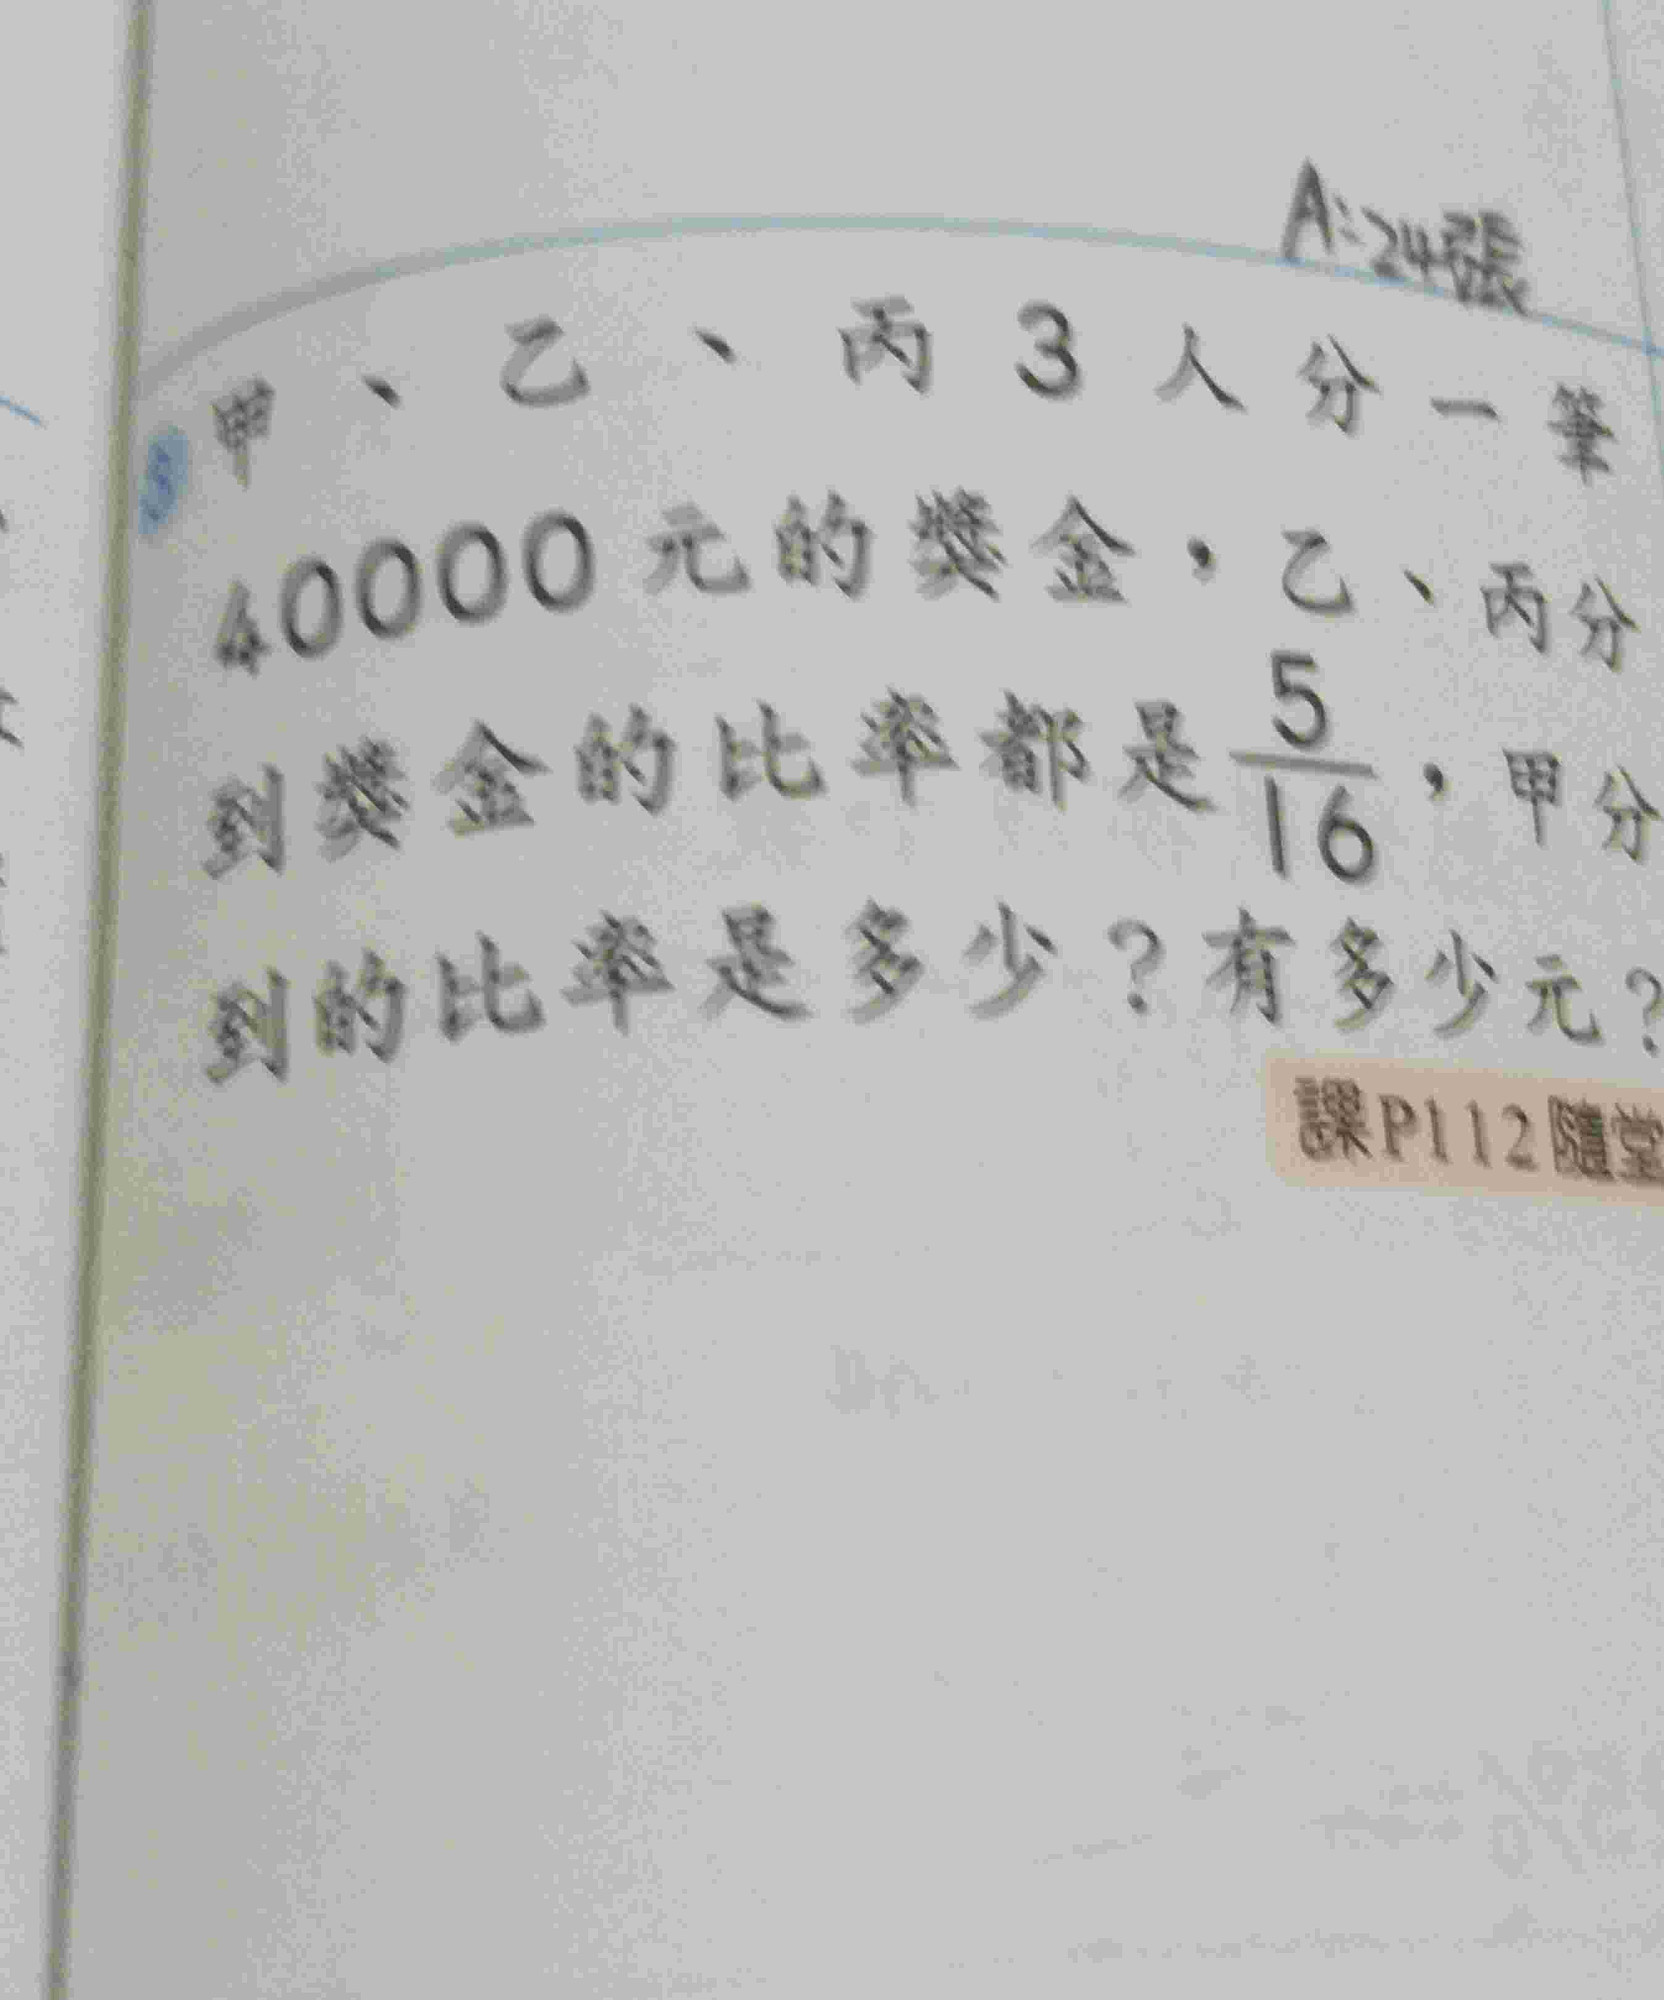 A:24張
甲、乙、丙3人分一筆
40000元的獎金，乙、丙分
到獎金的比率都是5/16，甲分
到的比率是多少？有多少元？
課P112隨堂